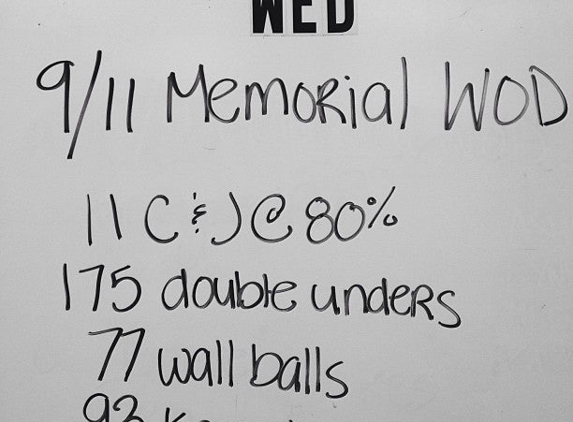 WED
9/11 Memorial WOD
11 C & J @ 80%
175 double unders
77 wall balls
93